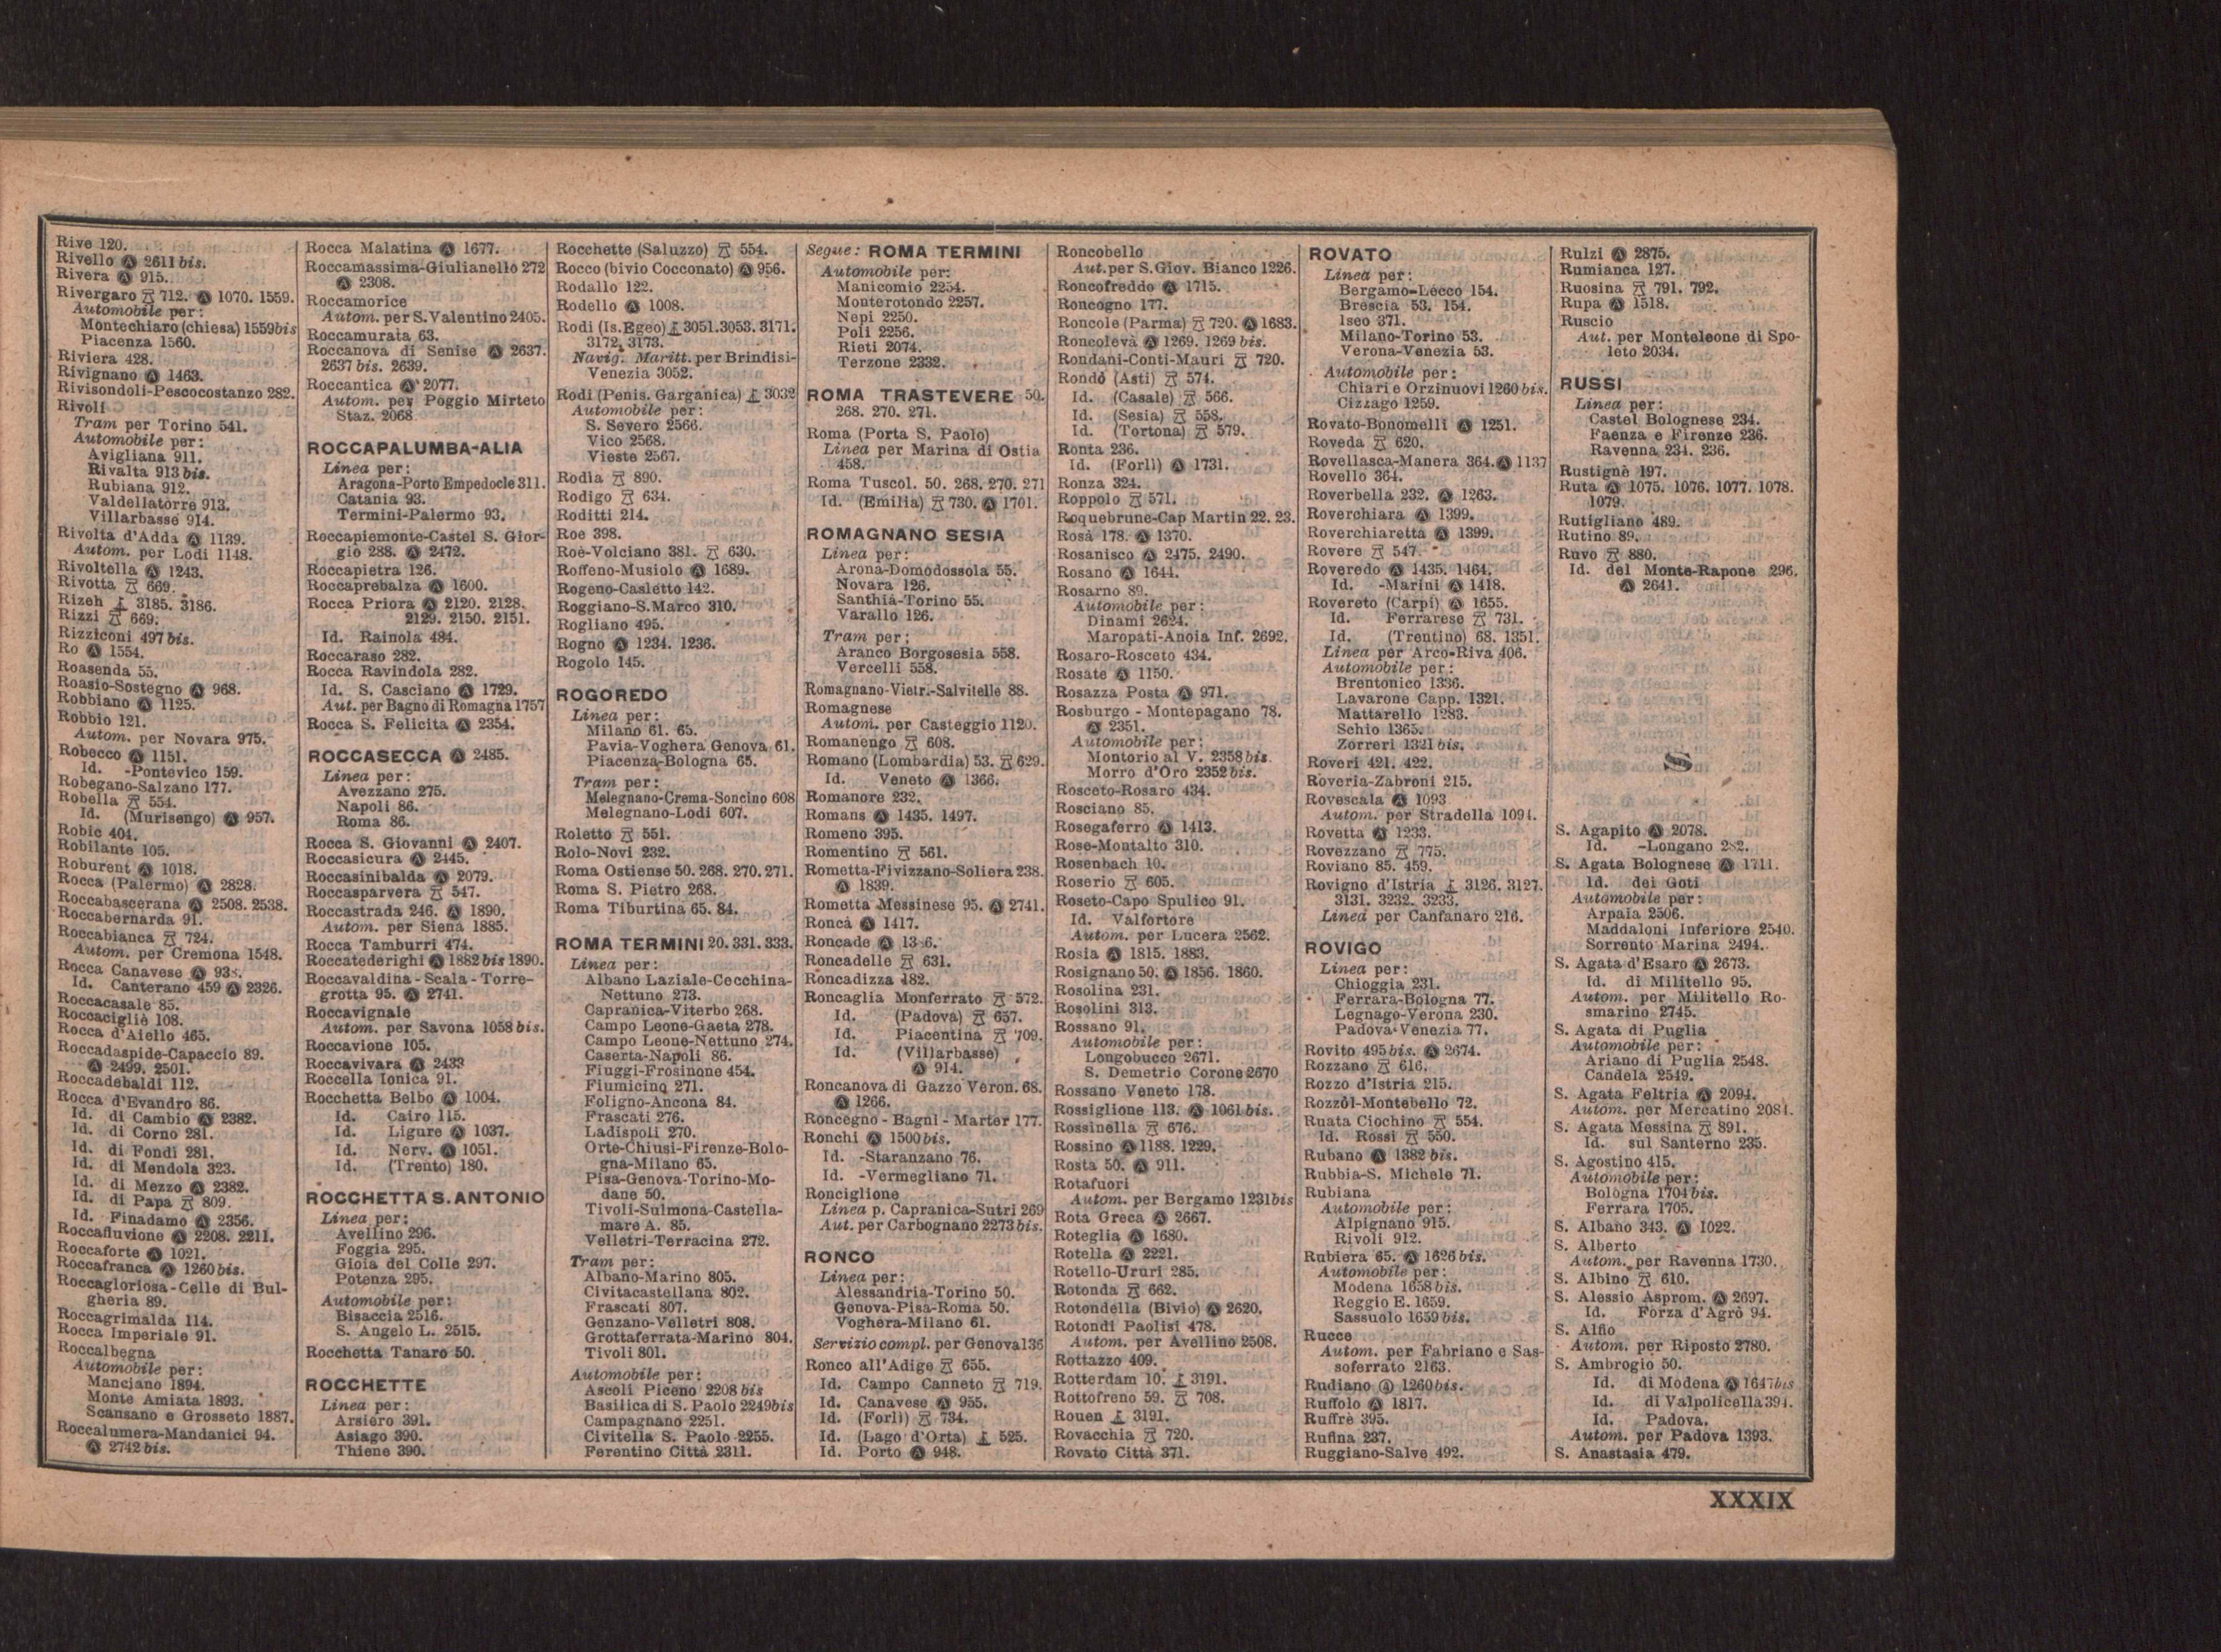 Rive 120.
Rivello Ⓐ 2611 bis.
Rivera Ⓐ 915.
Rivergaro 712. Ⓐ 1070. 1559.
Automobile per:
Montechiaro (chiesa) 1559 bis
Piacenza 1560.
Riviera 428.
Rivignano Ⓐ 1463.
Rivisondoli-Pescocostanzo 282.
Rivoli
Tram per Torino 541.
Automobile per:
Avigliana 911.
Rivalta 913 bis.
Rubiana 912.
Valdellatorre 913.
Villarbasse 914.
Rivolta d'Adda Ⓐ 1139.
Autom. per Lodi 1148.
Rivoltella Ⓐ 1243.
Rivotta 669.
Rizeh 3185. 3186.
Rizzi 669.
Rizziconi 497 bis.
Ro Ⓐ 1554.
Roasenda 55.
Roasio-Sostegno Ⓐ 968.
Robbiano Ⓐ 1125.
Robbio 121.
Autom. per Novara 975.
Robecco Ⓐ 1151.
Id. -Pontevico 159.
Robegano-Salzano 177.
Robella 554.
Id. (Murisengo) Ⓐ 957.
Robic 404.
Robilante 105.
Roburent Ⓐ 1018.
Rocca (Palermo) Ⓐ 2828.
Roccabascerana Ⓐ 2508. 2538.
Roccabernarda 91.
Roccabianca 724.
Autom. per Cremona 1548.
Rocca Canavese Ⓐ
Id. Canterano 459 Ⓐ 2326.
Roccacasale 85.
Roccacigliè 108.
Rocca d'Aiello 465.
Roccadaspide-Capaccio 89.
Ⓐ 2499. 2501.
Roccadebaldi 112.
Rocca d'Evandro 86.
Id. di Cambio Ⓐ 2382.
Id. di Corno 281.
Id. di Fondi 281.
Id. di Mendola 323.
Id. di Mezzo Ⓐ 2382.
Id. di Papa 809.
Id. Finadamo Ⓐ 2356.
Roccafluvione Ⓐ 2208. 2211.
Roccaforte Ⓐ 1021.
Roccafranca Ⓐ 1260 bis.
Roccagloriosa-Celle di Bul-
gheria 89.
Roccagrimalda 114.
Rocca Imperiale 91.
Roccalbegna
Automobile per:
Manciano 1894.
Monte Amiata 1893.
Scansano e Grosseto 1887.
Roccalumera-Mandanici 94.
Ⓐ 2742 bis.
Rocca Malatina Ⓐ 1677.
Roccamassima-Giulianello 272
Ⓐ 2308.
Roccamorice
Autom. per S. Valentino 2405.
Roccamurata 63.
Roccanova di Senise Ⓐ 2637.
2637 bis. 2639.
Roccantica Ⓐ 2077.
Autom. per Poggio Mirteto
Staz. 2068
ROCCAPALUMBA-ALIA
Linea per:
Aragona-Porto Empedocle 311.
Catania 93.
Termini-Palermo 93.
Roccapiemonte-Castel S. Gior-
gio 288. Ⓐ 2472.
Roccapietra 126.
Roccaprebalza Ⓐ 1600.
Rocca Priora Ⓐ 2120. 2128.
2129. 2150. 2151.
Id. Rainola 484.
Roccaraso 282.
Rocca Ravindola 282.
Id. S. Casciano Ⓐ 1729.
Aut. per Bagno di Romagna 1757
Rocca S. Felicita Ⓐ 2354.
ROCCASECCA Ⓐ 2485.
Linea per:
Avezzano 275.
Napoli 86.
Roma 86.
Rocca S. Giovanni Ⓐ 2407.
Roccasicura Ⓐ 2445.
Roccasinibalda Ⓐ 2079.
Roccasparvera 547.
Roccastrada 246. Ⓐ 1890.
Autom. per Siena 1885.
Rocca Tamburri 474.
Roccatederighi Ⓐ 1882 bis 1890.
Roccavaldina-Scala-Torre-
grotta 95. Ⓐ 2741.
Roccavignale
Autom. per Savona 1058 bis.
Roccavione 105.
Roccavivara Ⓐ 2433
Roccella Ionica 91.
Rocchetta Belbo Ⓐ 1004.
Id. Cairo 115.
Id. Ligure Ⓐ 1037.
Id. Nerv. Ⓐ 1051.
Id. (Trento) 180.
ROCCHETTA S. ANTONIO
Linea per:
Avellino 296.
Foggia 295.
Gioia del Colle 297.
Potenza 295.
Automobile per:
Bisaccia 2516.
S. Angelo L. 2515.
Rocchetta Tanaro 50.
ROCCHETTE
Linea per:
Arsiero 391.
Asiago 390.
Thiene 390.
Rocchette (Saluzzo) 554.
Rocco (bivio Cocconato) Ⓐ 956.
Rodallo 122.
Rodello Ⓐ 1008.
Rodi (Is. Egeo) 3051. 3053. 3171.
3172. 3173.
Navig. Maritt. per Brindisi-
Venezia 3052.
Rodi (Penis. Garganica) 3032
Automobile per:
S. Severo 2566.
Vico 2568.
Vieste 2567.
Rodia 890.
Rodigo 634.
Roditti 214.
Roe 398.
Roè-Volciano 381. 630.
Roffeno-Musiolo Ⓐ 1689.
Rogeno-Casletto 142.
Roggiano-S. Marco 310.
Rogliano 495.
Rogno Ⓐ 1234. 1236.
Rogolo 145.
ROGOREDO
Linea per:
Milano 61. 65.
Pavia-Voghera Genova 61.
Piacenza-Bologna 65.
Tram per:
Melegnano-Crema-Soncino 608
Melegnano-Lodi 607.
Roletto 551.
Rolo-Novi 232.
Roma Ostiense 50. 268. 270. 271.
Roma S. Pietro 268.
Roma Tiburtina 65. 84.
ROMA TERMINI 20. 331. 333.
Linea per:
Albano Laziale-Cecchina-
Nettuno 273.
Capranica-Viterbo 268.
Campo Leone-Gaeta 278.
Campo Leone-Nettuno 274.
Caserta-Napoli 86.
Fiuggi-Frosinone 454.
Fiumicino 271.
Foligno-Ancona 84.
Frascati 276.
Ladispoli 270.
Orte-Chiusi-Firenze-Bolo-
gna-Milano 65.
Pisa-Genova-Torino-Mo-
dane 50.
Tivoli-Sulmona-Castella-
mare A. 85.
Velletri-Terracina 272.
Tram per:
Albano-Marino 805.
Civitacastellana 802.
Frascati 807.
Genzano-Velletri 808.
Grottaferrata-Marino 804.
Tivoli 801.
Automobile per:
Ascoli Piceno 2208 bis
Basilica di S. Paolo 2249 bis
Campagnano 2251.
Civitella S. Paolo 2255.
Ferentino Città 2311.
Segue: ROMA TERMINI
Automobile per:
Manicomio 2254.
Monterotondo 2257.
Nepi 2250.
Poli 2256.
Rieti 2074.
Terzone 2332.
ROMA TRASTEVERE 50.
268. 270. 271.
Roma (Porta S. Paolo)
Linea per Marina di Ostia
458.
Roma Tuscol. 50. 268. 270. 271
Id. (Emilia) 730. Ⓐ 1701.
ROMAGNANO SESIA
Linea per:
Arona-Domodossola 55.
Novara 126.
Santhià-Torino 55.
Varallo 126.
Tram per:
Aranco Borgosesia 558.
Vercelli 558.
Romagnano-Vietri-Salvitelle 88.
Romagnese
Autom. per Casteggio 1120.
Romanengo 608.
Romano (Lombardia) 53. 629.
Id. Veneto Ⓐ 1366.
Romanore 232.
Romans Ⓐ 1435. 1497.
Romeno 395.
Romentino 561.
Rometta-Fivizzano-Soliera 238.
Ⓐ 1839.
Rometta Messinese 95. Ⓐ 2741.
Roncà Ⓐ 1417.
Roncade Ⓐ
Roncadelle 631.
Roncadizza 482.
Roncaglia Monferrato 572.
Id. (Padova) 657.
Id. Piacentina 709.
Id. (Villarbasse)
Ⓐ 914.
Roncanova di Gazzo Veron. 68.
Ⓐ 1266.
Roncegno-Bagni-Marter 177.
Ronchi Ⓐ 1500 bis.
Id. -Staranzano 76.
Id. -Vermegliano 71.
Ronciglione
Linea p. Capranica-Sutri 269
Aut. per Carbognano 2273 bis.
RONCO
Linea per:
Alessandria-Torino 50.
Genova-Pisa-Roma 50.
Voghera-Milano 61.
Servizio compl. per Genova 136
Ronco all'Adige 655.
Id. Campo Canneto 719.
Id. Canavese Ⓐ 955.
Id. (Forlì) 734.
Id. (Lago d'Orta) 525.
Id. Porto Ⓐ 948.
Roncobello
Aut. per S. Giov. Bianco 1226.
Roncofreddo Ⓐ 1715.
Roncogno 177.
Roncole (Parma) 720. Ⓐ 1683.
Roncolevà Ⓐ 1269. 1269 bis.
Rondani-Conti-Mauri 720.
Rondò (Asti) 574.
Id. (Casale) 566.
Id. (Sesia) 558.
Id. (Tortona) 579.
Ronta 236.
Id. (Forlì) Ⓐ 1731.
Ronza 324.
Roppolo 571.
Roquebrune-Cap Martin 22. 23.
Rosà 178. Ⓐ 1370.
Rosanisco Ⓐ 2475. 2490.
Rosano Ⓐ 1644.
Rosarno 89.
Automobile per:
Dinami 2624.
Maropati-Anoia Inf. 2692.
Rosaro-Rosceto 434.
Rosate Ⓐ 1150.
Rosazza Posta Ⓐ 971.
Rosburgo - Montepagano 78.
Ⓐ 2351.
Automobile per:
Montorio al V. 2358 bis
Morro d'Oro 2352 bis.
Rosceto-Rosaro 434.
Rosciano 85.
Rosegaferro Ⓐ 1413.
Rose-Montalto 310.
Rosenbach 10.
Roserio 605.
Roseto-Capo Spulico 91.
Id. Valfortore
Autom. per Lucera 2562.
Rosia Ⓐ 1815. 1883.
Rosignano 50. Ⓐ 1856. 1860.
Rosolina 231.
Rosolini 313.
Rossano 91.
Automobile per:
Longobucco 2671.
S. Demetrio Corone 2670
Rossano Veneto 178.
Rossiglione 113. Ⓐ 1061 bis.
Rossinella 676.
Rossino Ⓐ 1188. 1229.
Rosta 50. Ⓐ 911.
Rotafuori
Autom. per Bergamo 1231 bis
Rota Greca Ⓐ 2667.
Roteglia Ⓐ 1680.
Rotella Ⓐ 2221.
Rotello-Ururi 285.
Rotonda 662.
Rotondella (Bivio) Ⓐ 2620.
Rotondi Paolisi 478.
Autom. per Avellino 2508.
Rottazzo 409.
Rotterdam 10. 3191.
Rottofreno 59. 708.
Rouen 3191.
Rovacchia 720.
Rovato Città 371.
ROVATO
Linea per:
Bergamo-Lecco 154.
Brescia 53. 154.
Iseo 371.
Milano-Torino 53.
Verona-Venezia 53.
Automobile per:
Chiari e Orzinuovi 1260 bis.
Cizzago 1259.
Rovato-Bonomelli Ⓐ 1251.
Roveda 620.
Rovellasca-Manera 364. Ⓐ 1137
Rovello 364.
Roverbella 232. Ⓐ 1263.
Roverchiara Ⓐ 1399.
Roverchiaretta Ⓐ 1399.
Rovere 547.
Roveredo Ⓐ 1435. 1464.
Id. -Marini Ⓐ 1418.
Rovereto (Carpi) Ⓐ 1655.
Id. Ferrarese 731.
Id. (Trentino) 68. 1351.
Linea per Arco-Riva 406.
Automobile per:
Brentonico 1336.
Lavarone Capp. 1321.
Mattarello 1283.
Schio 1365.
Zorreri 1321 bis.
Roveri 421. 422.
Roveria-Zabroni 215.
Rovescala Ⓐ 1093
Autom. per Stradella 1094.
Rovetta Ⓐ 1233.
Rovezzano 775.
Roviano 85. 459.
Rovigno d'Istria 3126. 3127.
3131. 3232. 3233.
Linea per Canfanaro 216.
ROVIGO
Linea per:
Chioggia 231.
Ferrara-Bologna 77.
Legnago-Verona 230.
Padova-Venezia 77.
Rovito 495 bis. Ⓐ 2674.
Rozzano 616.
Rozzo d'Istria 215.
Rozzòl-Montebello 72.
Ruata Ciochino 554.
Id. Rossi 550.
Rubano Ⓐ 1382 bis.
Rubbia-S. Michele 71.
Rubiana
Automobile per:
Alpignano 915.
Rivoli 912.
Rubiera 65. Ⓐ 1626 bis.
Automobile per:
Modena 1658 bis.
Reggio E. 1659.
Sassuolo 1659 bis.
Rucce
Autom. per Fabriano e Sas-
soferrato 2163.
Rudiano Ⓐ 1260 bis.
Ruffolo Ⓐ 1817.
Ruffrè 395.
Rufina 237.
Ruggiano-Salve 492.
Rulzi Ⓐ 2875.
Rumianca 127.
Ruosina 791. 792.
Rupa Ⓐ 1518.
Ruscio
Aut. per Monteleone di Spo-
leto 2034.
RUSSI
Linea per:
Castel Bolognese 234.
Faenza e Firenze 236.
Ravenna 234. 236.
Rustignè 197.
Ruta Ⓐ 1075. 1076. 1077. 1078.
1079.
Rutigliano 489.
Rutino 89.
Ruvo 880.
Id. del Monte-Rapone 296.
Ⓐ 2641.
S
S. Agapito Ⓐ 2078.
Id. -Longano
S. Agata Bolognese Ⓐ 1711.
Id. dei Goti
Automobile per:
Arpaia 2506.
Maddaloni Inferiore 2540.
Sorrento Marina 2494.
S. Agata d'Esaro Ⓐ 2673.
Id. di Militello 95.
Autom. per Militello Ro-
smarino 2745.
S. Agata di Puglia
Automobile per:
Ariano di Puglia 2548.
Candela 2549.
S. Agata Feltria Ⓐ 2094.
Autom. per Mercatino 2084.
S. Agata Messina 891.
Id. sul Santerno 235.
S. Agostino 415.
Automobile per:
Bologna 1704 bis.
Ferrara 1705.
S. Albano 343. Ⓐ 1022.
S. Alberto
Autom. per Ravenna 1730.
S. Albino 610.
S. Alessio Asprom. Ⓐ 2697.
Id. Forza d'Agrò 94.
S. Alfio
Autom. per Riposto 2780.
S. Ambrogio 50.
Id. di Modena Ⓐ 1647 bis
Id. di Valpolicella 394.
Id. Padova.
Autom. per Padova 1393.
S. Anastasia 479.
XXXIX